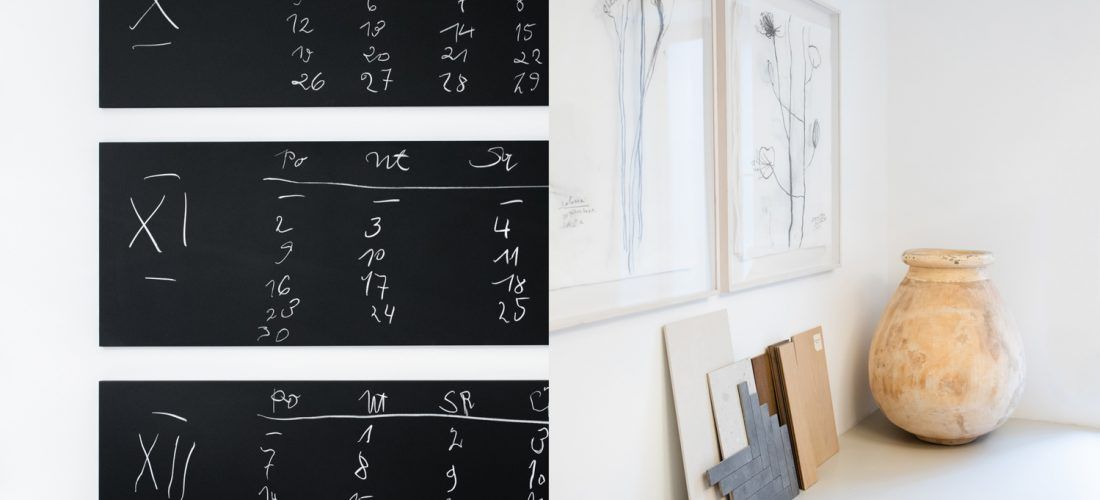 X
6 7 8
12 13 14 15
19 20 21 22
26 27 28 29
XI
Po Ut Sr
— — —
2 3 4
9 10 11
16 17 18
23 24 25
30
XII
Po Ut SR
— 1 2 3
7 8 9 10
14 15